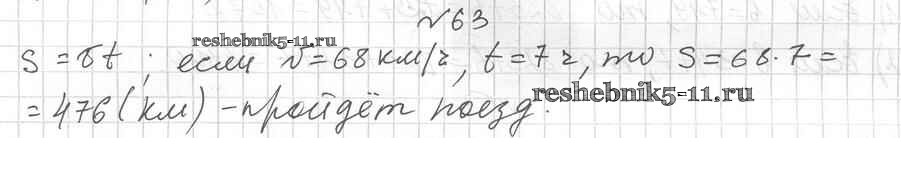 №63
reshebnik5-11.ru
S = vt; если v = 68 км/ч, t = 7 ч, то S = 68·7 =
= 476 (км) – пройдёт поезд.
reshebnik5-11.ru